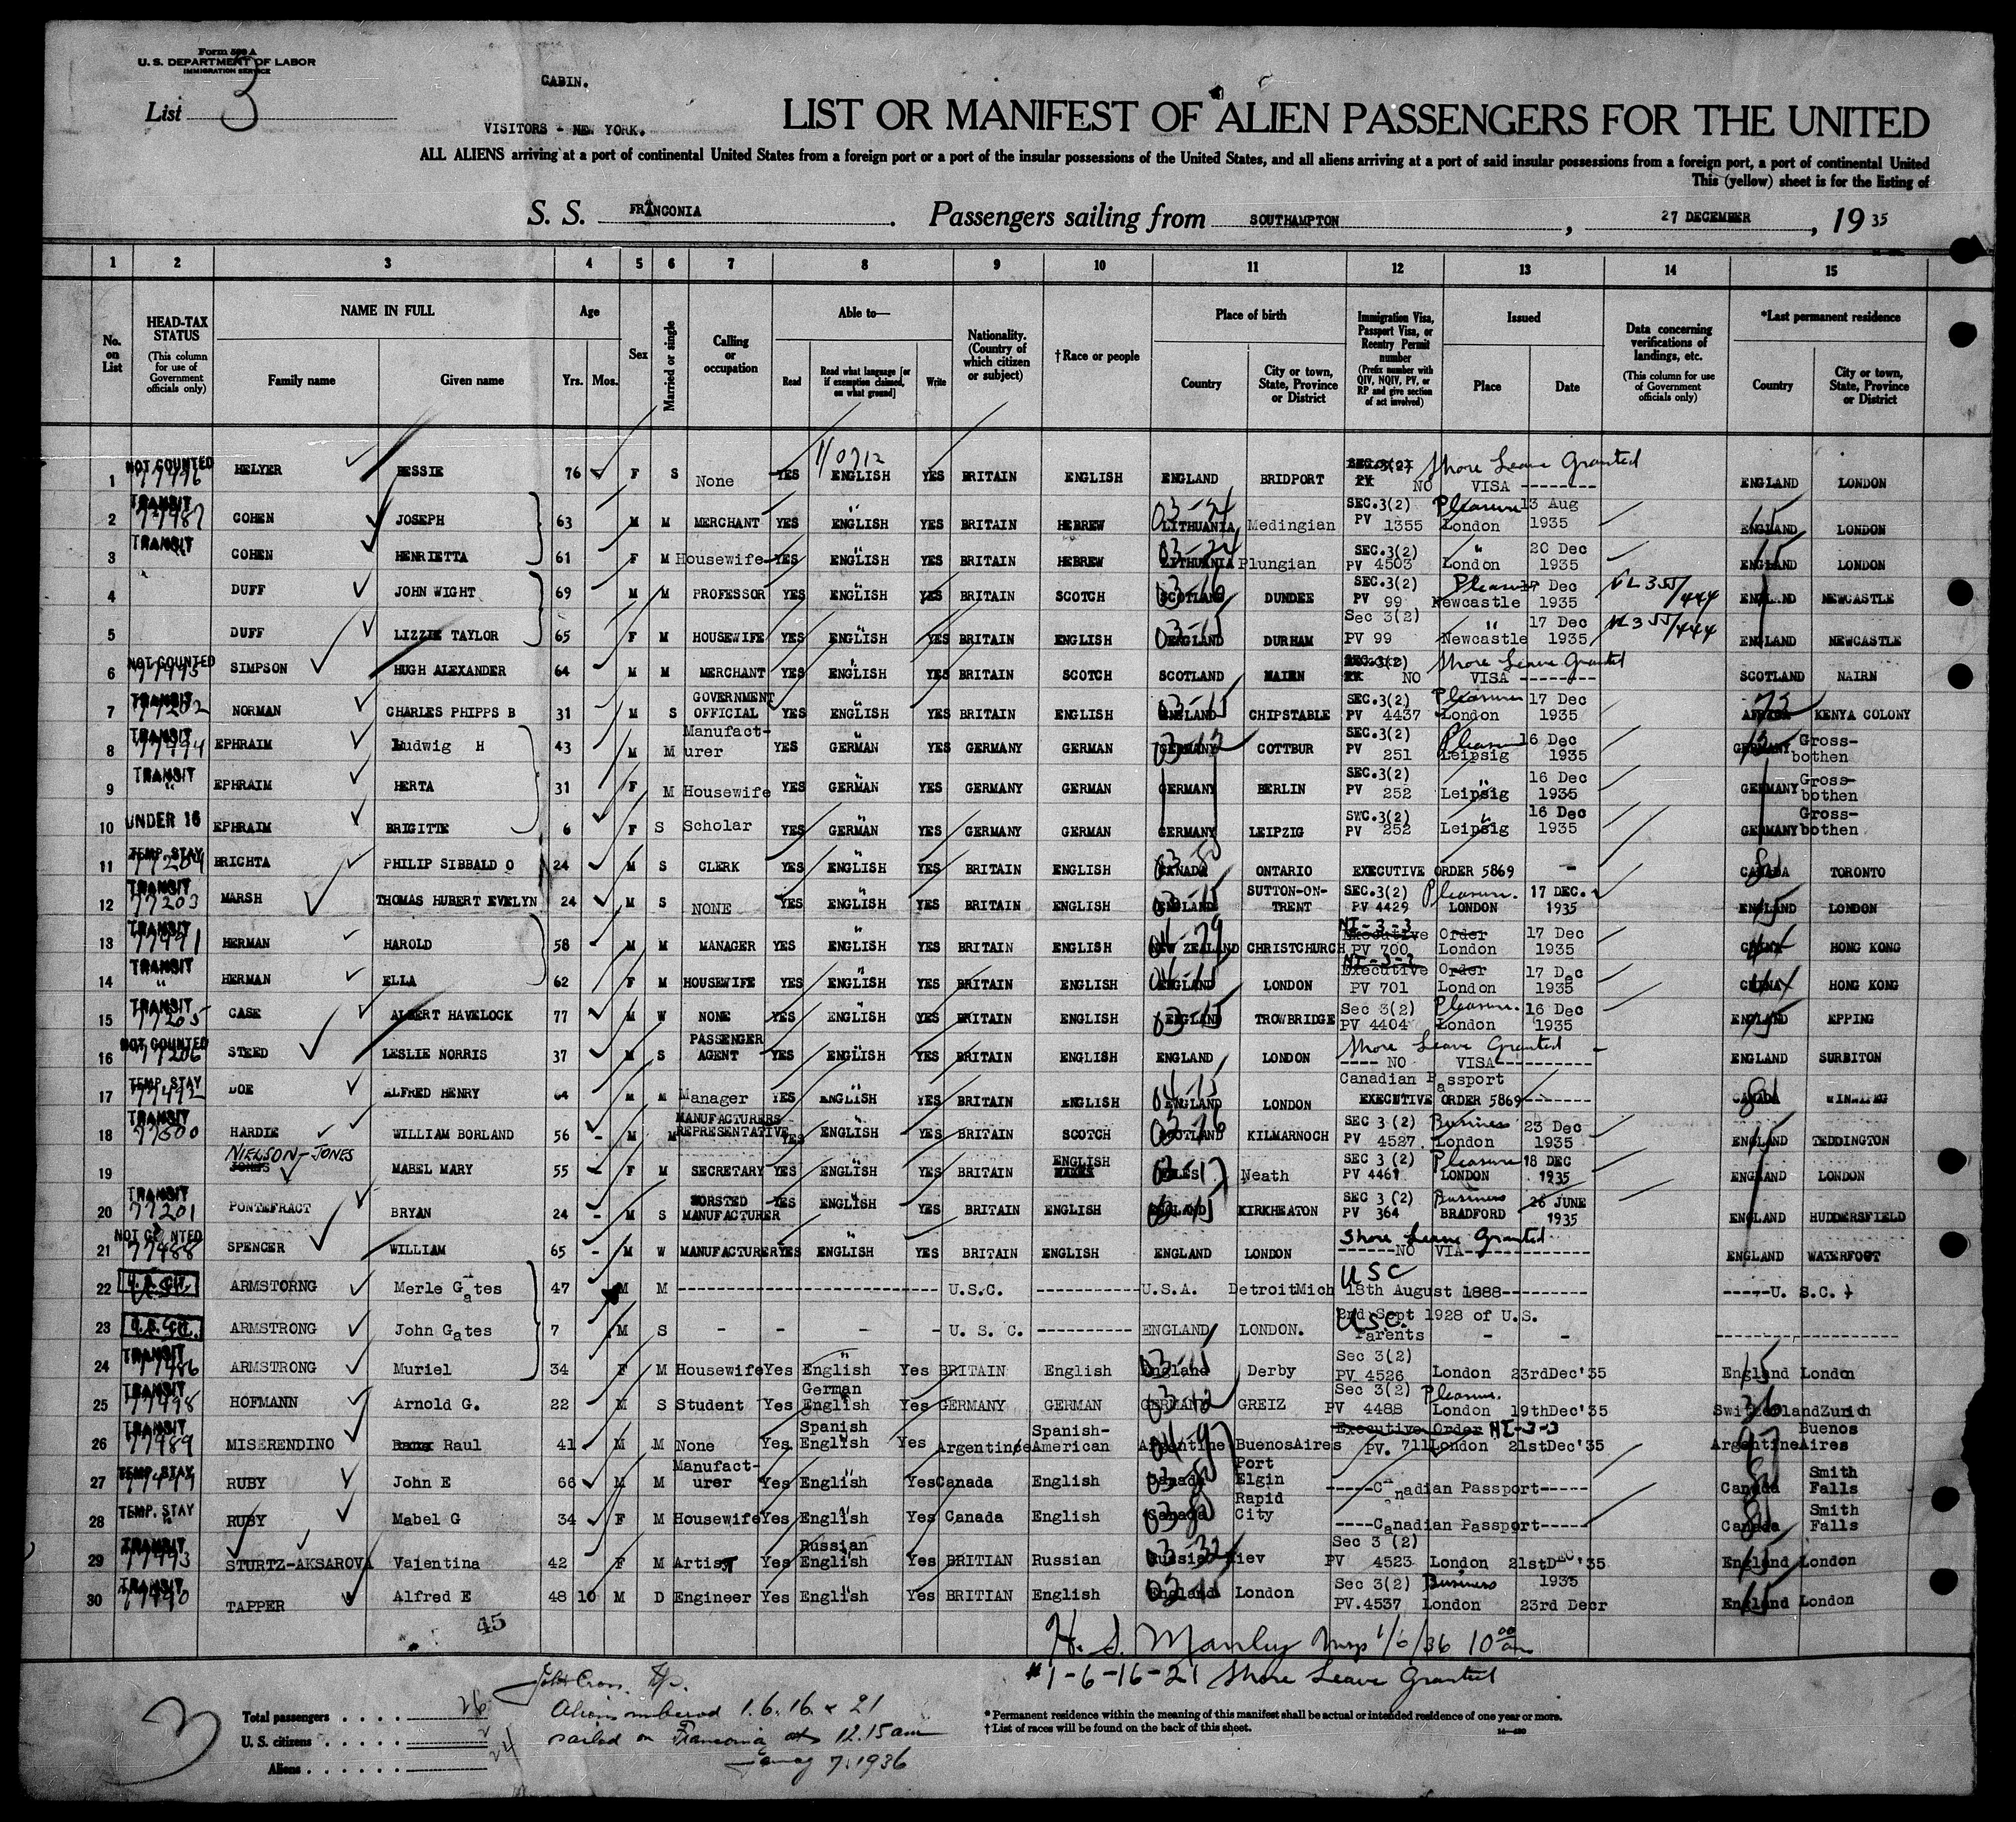 Form 500 A
U. S. DEPARTMENT OF LABOR
IMMIGRATION SERVICE
List 3
CABIN.
VISITORS - NEW YORK.
LIST OR MANIFEST OF ALIEN PASSENGERS FOR THE UNITED
ALL ALIENS arriving at a port of continental United States from a foreign port or a port of the insular possessions of the United States, and all aliens arriving at a port of said insular possessions from a foreign port, a port of continental United
This (yellow) sheet is for the listing of
S. S. FRANCONIA. Passengers sailing from SOUTHAMPTON, 27 DECEMBER, 1935
1 2 3 4 5 6 7 8 9 10 11 12 13 14 15
No. on List
HEAD-TAX STATUS (This column for use of Government officials only)
NAME IN FULL
Family name Given name
Age
Yrs. Mos.
Sex
Married or single
Calling or occupation
Able to—
Read
Read what language [or if exemption claimed, on what ground]
Write
Nationality. (Country of which citizen or subject)
†Race or people
Place of birth
Country
City or town, State, Province or District
Immigration Visa, Passport Visa, or Reentry Permit number (Prefix number with QIV, NQIV, PV, or RP and give section of act involved)
Issued
Place Date
Data concerning verifications of landings, etc. (This column for use of Government officials only)
*Last permanent residence
Country
City or town, State, Province or District
1 NOT COUNTED 77496 HELYER BESSIE 76 F S None YES ENGLISH YES BRITAIN ENGLISH ENGLAND BRIDPORT SEC.3(2) PV NO VISA -------- Shore Leave Granted ENGLAND LONDON
2 TRANSIT 77487 COHEN JOSEPH 63 M M MERCHANT YES ENGLISH YES BRITAIN HEBREW LITHUANIA Medingian SEC.3(2) PV 1355 Pleasure London 13 Aug 1935 ENGLAND LONDON
3 TRANSIT COHEN HENRIETTA 61 F M Housewife YES ENGLISH YES BRITAIN HEBREW LITHUANIA Plungian SEC.3(2) PV 4503 " London 20 Dec 1935 ENGLAND LONDON
4 DUFF JOHN WIGHT 69 M M PROFESSOR YES ENGLISH YES BRITAIN SCOTCH SCOTLAND DUNDEE SEC.3(2) PV 99 Pleasure Newcastle 17 Dec 1935 ENGLAND NEWCASTLE
5 DUFF LIZZIE TAYLOR 65 F M HOUSEWIFE YES ENGLISH YES BRITAIN ENGLISH ENGLAND DURHAM Sec 3(2) PV 99 " Newcastle 17 Dec 1935 ENGLAND NEWCASTLE
6 NOT COUNTED 77495 SIMPSON HUGH ALEXANDER 64 M M MERCHANT YES ENGLISH YES BRITAIN SCOTCH SCOTLAND NAIRN SEC.3(2) PV NO VISA -------- Shore Leave Granted SCOTLAND NAIRN
7 TRANSIT 77202 NORMAN CHARLES PHIPPS B 31 M S GOVERNMENT OFFICIAL YES ENGLISH YES BRITAIN ENGLISH ENGLAND CHIPSTABLE SEC.3(2) PV 4437 Pleasure London 17 Dec 1935 AFRICA KENYA COLONY
8 TRANSIT 77494 EPHRAIM Ludwig H 43 M M Manufact-urer YES GERMAN YES GERMANY GERMAN GERMANY COTTBUR SEC.3(2) PV 251 Pleasure Leipsig 16 Dec 1935 GERMANY Gross-bothen
9 TRANSIT " EPHRAIM HERTA 31 F M Housewife YES GERMAN YES GERMANY GERMAN GERMANY BERLIN SEC.3(2) PV 252 " Leipsig 16 Dec 1935 GERMANY Gross-bothen
10 UNDER 16 EPHRAIM BRIGITTE 6 F S Scholar YES GERMAN YES GERMANY GERMAN GERMANY LEIPZIG SWC.3(2) PV 252 " Leipsig 16 Dec 1935 GERMANY Gross-bothen
11 TEMP. STAY 77204 BRICHTA PHILIP SIBBALD O 24 M S CLERK YES ENGLISH YES BRITAIN ENGLISH CANADA ONTARIO EXECUTIVE ORDER 5869 - CANADA TORONTO
12 TRANSIT 77203 MARSH THOMAS HUBERT EVELYN 24 M S NONE YES ENGLISH YES BRITAIN ENGLISH ENGLAND SUTTON-ON-TRENT SEC.3(2) PV 4429 Pleasure. LONDON 17 DEC. 1935 ENGLAND LONDON
13 TRANSIT 77491 HERMAN HAROLD 58 M M MANAGER YES ENGLISH YES BRITAIN ENGLISH NEW ZEALAND CHRISTCHURCH NI-3-3 Executive Order PV 700 London 17 Dec 1935 CHINA HONG KONG
14 TRANSIT " HERMAN ELLA 62 F M HOUSEWIFE YES ENGLISH YES BRITAIN ENGLISH ENGLAND LONDON NI-3-3 Executive Order PV 701 London 17 Dec 1935 CHINA HONG KONG
15 TRANSIT 77205 CASE ALBERT HAVELOCK 77 M W NONE YES ENGLISH YES BRITAIN ENGLISH ENGLAND TROWBRIDGE Sec 3(2) PV 4404 Pleasure. London 16 Dec 1935 ENGLAND EPPING
16 NOT COUNTED 77206 STEED LESLIE NORRIS 37 M S PASSENGER AGENT YES ENGLISH YES BRITAIN ENGLISH ENGLAND LONDON Shore Leave Granted ---- NO VISA---------- ENGLAND SURBITON
17 TEMP. STAY 77492 DOE ALFRED HENRY 64 M M Manager YES ENGLISH YES BRITAIN ENGLISH ENGLAND LONDON Canadian Passport EXECUTIVE ORDER 5869-------- CANADA WINNIPEG
18 TRANSIT 77500 HARDIE WILLIAM BORLAND 56 - M M MANUFACTURERS REPRESENTATIVE YES ENGLISH YES BRITAIN SCOTCH SCOTLAND KILMARNOCH SEC 3 (2) PV 4527 Business London 23 Dec 1935 ENGLAND TEDDINGTON
19 NIELSON-JONES JONES MABEL MARY 55 F M SECRETARY YES ENGLISH YES BRITAIN ENGLISH WALES Neath SEC 3 (2) PV 4461 Pleasure LONDON 18 DEC 1935 ENGLAND LONDON
20 TRANSIT 77201 PONTEFRACT BRYAN 24 - M S WORSTED MANUFACTURER YES ENGLISH YES BRITAIN ENGLISH ENGLAND KIRKHEATON SEC 3 (2) PV 364 Business BRADFORD 26 JUNE 1935 ENGLAND HUDDERSFIELD
21 NOT COUNTED 77488 SPENCER WILLIAM 65 - M W MANUFACTURER YES ENGLISH YES BRITAIN ENGLISH ENGLAND LONDON Shore Leave Granted -------NO VIA-------------- ENGLAND WATERFOOT
22 U.S. CIT. ARMSTORNG Merle Gates 47 M M -------------------------- U.S.C. ----------- U.S.A. Detroit Mich USC 18th August 1888--------- -----U. S.C.
23 U.S. CIT. ARMSTRONG John Gates 7 M S - - - - U. S. C. ---------- ENGLAND LONDON. 2nd Sept 1928 of U.S. Parents U.S.C. - - --------------------
24 TRANSIT 77486 ARMSTRONG Muriel 34 F M Housewife Yes English Yes BRITAIN English England Derby Sec 3(2) PV 4526 London 23rdDec'35 England London
25 TRANSIT 77498 HOFMANN Arnold G. 22 M S Student Yes German English Yes GERMANY GERMAN GERMANY GREIZ Sec 3(2) PV 4488 Pleasure. London 19thDec'35 Switzerland Zurich
26 TRANSIT 77489 MISERENDINO Raul 41 M M None Yes Spanish English Yes Argentine Spanish-American Argentine BuenosAires Executive Order NI-3-3 PV. 711 London 21stDec'35 Argentine Buenos Aires
27 TEMP. STAY 77499 RUBY John E 66 M M Manufact-urer Yes English Yes Canada English Canada Port Elgin -----Canadian Passport----- Canada Smith Falls
28 TEMP. STAY " RUBY Mabel G 34 F M Housewife Yes English Yes Canada English Canada Rapid City ----Canadian Passport----- Canada Smith Falls
29 TRANSIT 77493 STURTZ-AKSAROVA Valentina 42 F M Artist Yes Russian English Yes BRITIAN Russian Russia Kiev Sec 3 (2) PV 4523 London 21stDEC'35 England London
30 TRANSIT 77490 TAPPER Alfred E 48 10 M D Engineer Yes English Yes BRITIAN English England London Sec 3(2) PV.4537 Business London 1935 23rd Decr England London
45
H. S. Manley Insp 1/6/36 10 00 am
#1-6-16-21 Shore Leave Granted
3
Total passengers . . . . 26
U. S. citizens . . . . . 2
Aliens . . . . . . 24
John Cross.
Aliens numbered 1.6.16. & 21
sailed on Franconia at 12.15am
7.1936
* Permanent residence within the meaning of this manifest shall be actual or intended residence of one year or more.
† List of races will be found on the back of this sheet.